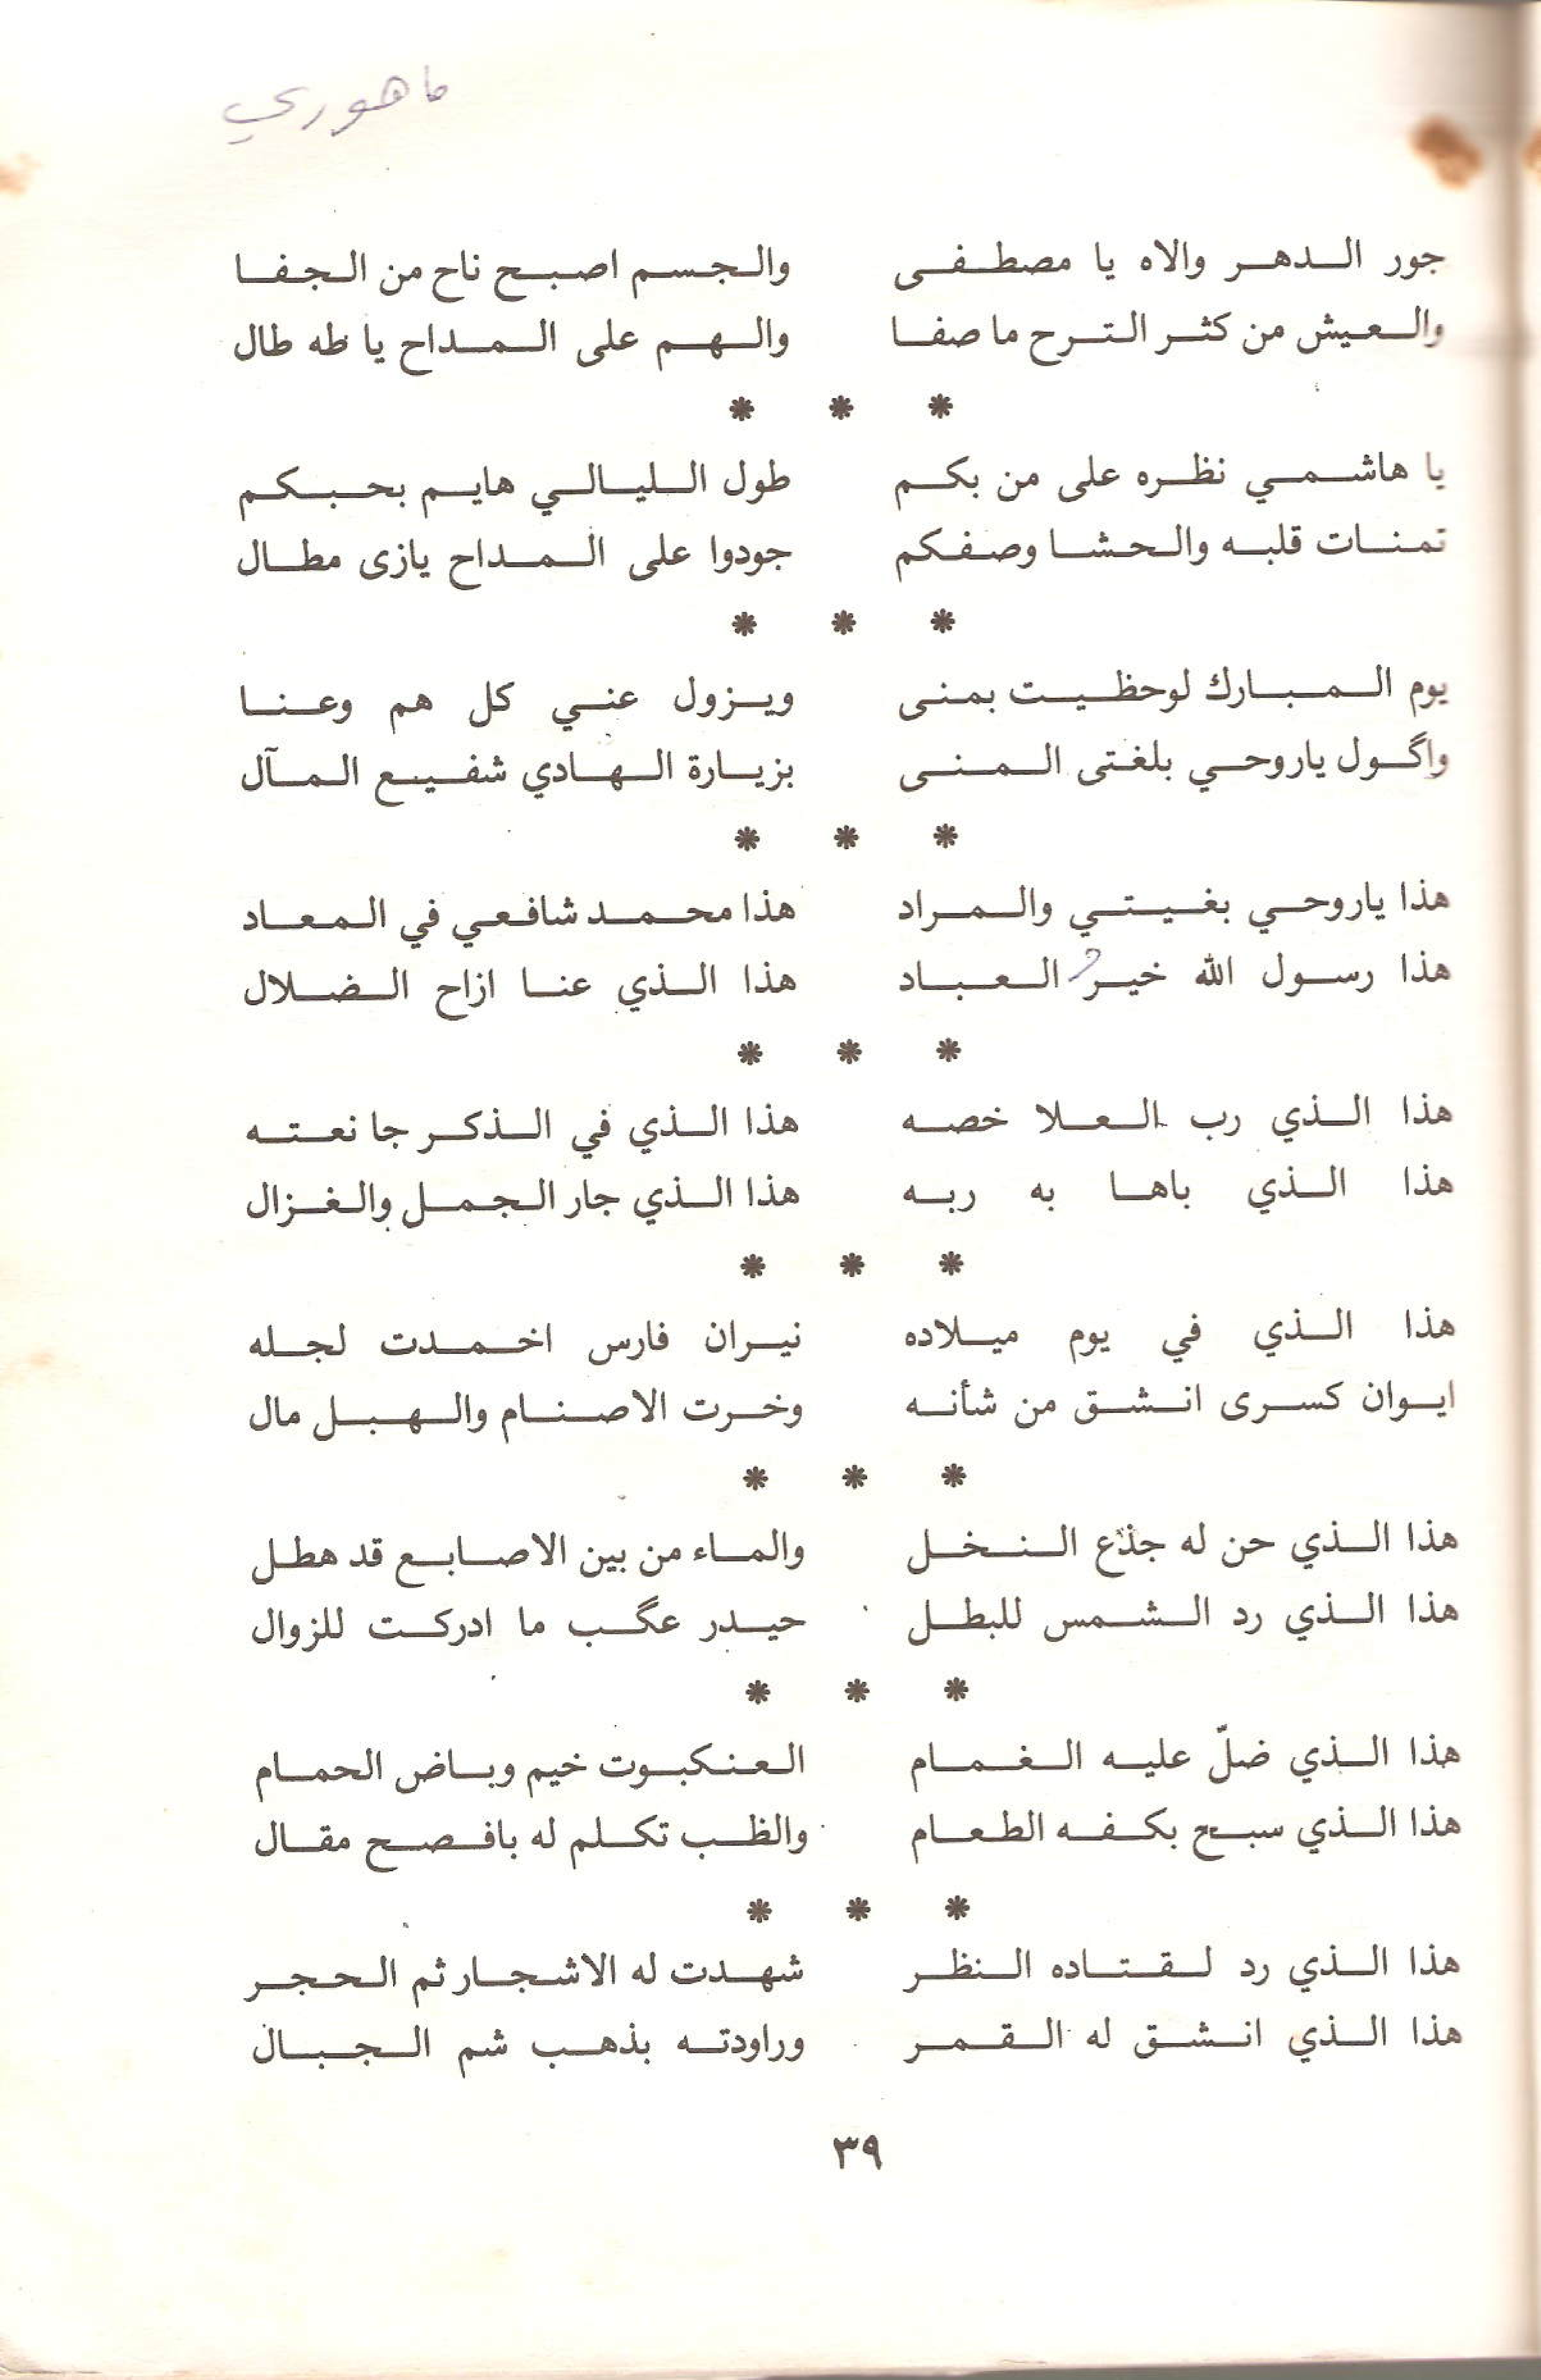 ماهوري
جور الدهر والاه يا مصطفى والجسم اصبح ناح من الجفا
والعيش من كثر الترح ما صفا والهم على المداح يا طه طال
* * *
يا هاشمي نظره على من بكم طول الليالي هايم بحبكم
تمنات قلبه والحشا وصفكم جودوا على المداح يازى مطال
* * *
يوم المبارك لوحظيت بمنى ويزول عني كل هم وعنا
واگول ياروحي بلغتى المنى بزيارة الهادي شفيع المآل
* * *
هذا ياروحي بغيتي والمراد هذا محمد شافعي في المعاد
هذا رسول الله خير العباد هذا الذي عنا ازاح الضلال
* * *
هذا الذي رب العلا خصه هذا الذي في الذكر جا نعته
هذا الذي باها به ربه هذا الذي جار الجمل والغزال
* * *
هذا الذي في يوم ميلاده نيران فارس اخمدت لجله
ايوان كسرى انشق من شأنه وخرت الاصنام والهبل مال
* * *
هذا الذي حن له جذع النخل والماء من بين الاصابع قد هطل
هذا الذي رد الشمس للبطل حيدر عگب ما ادركت للزوال
* * *
هذا الذي ضلّ عليه الغمام العنكبوت خيم وباض الحمام
هذا الذي سبح بكفه الطعام والظب تكلم له بافصح مقال
* * *
هذا الذي رد لقتاده النظر شهدت له الاشجار ثم الحجر
هذا الذي انشق له القمر وراودته بذهب شم الجبال
٣٩